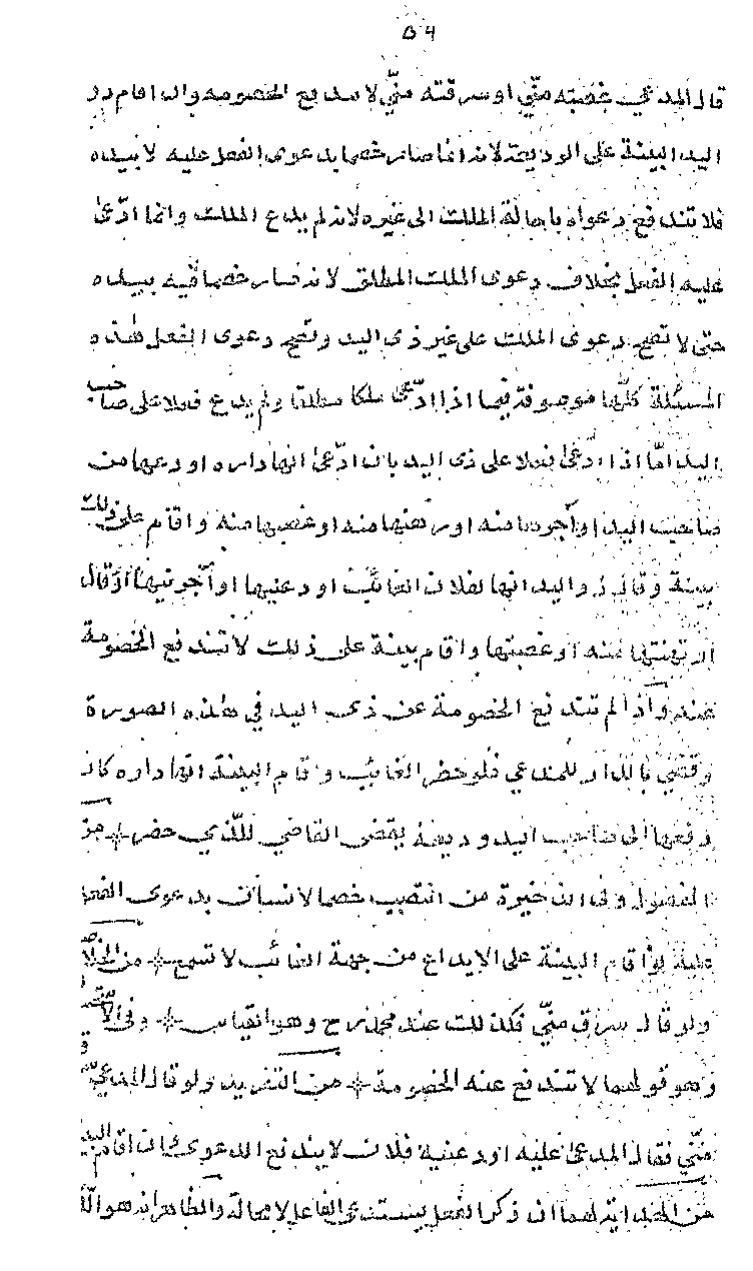 ٥٤
قال المدعي غصبته منّي او سرقته منّي لا تندفع الخصومة وان اقام ذو
اليد البينة على الوديعة لانه انما صار خصما بدعوى الفعل عليه لا بيده
فلا تندفع دعواه باحالة الملك الى غيره لانه لم يدع الملك وانما ادّعى
عليه الفعل بخلاف دعوى الملك المطلق لانه صار خصما فيه بيده
حتى لا تصح دعوى الملك على غير ذى اليد وتصح دعوى الفعل هذه
المسئلة كلّها موصوفة فيما اذا ادّعى ملكا مطلقا ولم يدع فعلا على صاحب
اليد امّا اذا ادّعى فعلا على ذى اليد بان ادّعى انها داره اودعها من
صاحب اليد او آجرها منه او رهنها منه او غصبها منه واقام على ذلك
بينة وقال ذو اليد انها لفلان الغائب اودعنيها او آجرنيها او قال
ارتهنتها منه او غصبتها واقام بينة على ذلك لا تندفع الخصومة
عنه واذا لم تندفع الخصومة عن ذى اليد في هذه الصورة
وقضي بالدار للمدعي فلو حضر الغائب واقام البينة انها داره كان
دفعها الى صاحب اليد وديعة يقضى القاضي للذي حضر من
الفصول وفى الذخيرة من انتصب خصما لانسان بدعوى الفعل
عليه لو اقام البينة على الايداع من جهة الغائب لا تسمع من الخلاصة
ولو قال سرق منّي فكذلك عند محمد رح وهو القياس وفى
وهو قولهما لا تندفع عنه الخصومة من التفريد ولو قال المدعي
منّي فقال المدعى عليه اودعنيه فلان لا يندفع الدعوى وان اقام البينة
من الهداية لهما ان ذكر الفعل يستدعى الفاعل لا محالة والظاهر انه هو